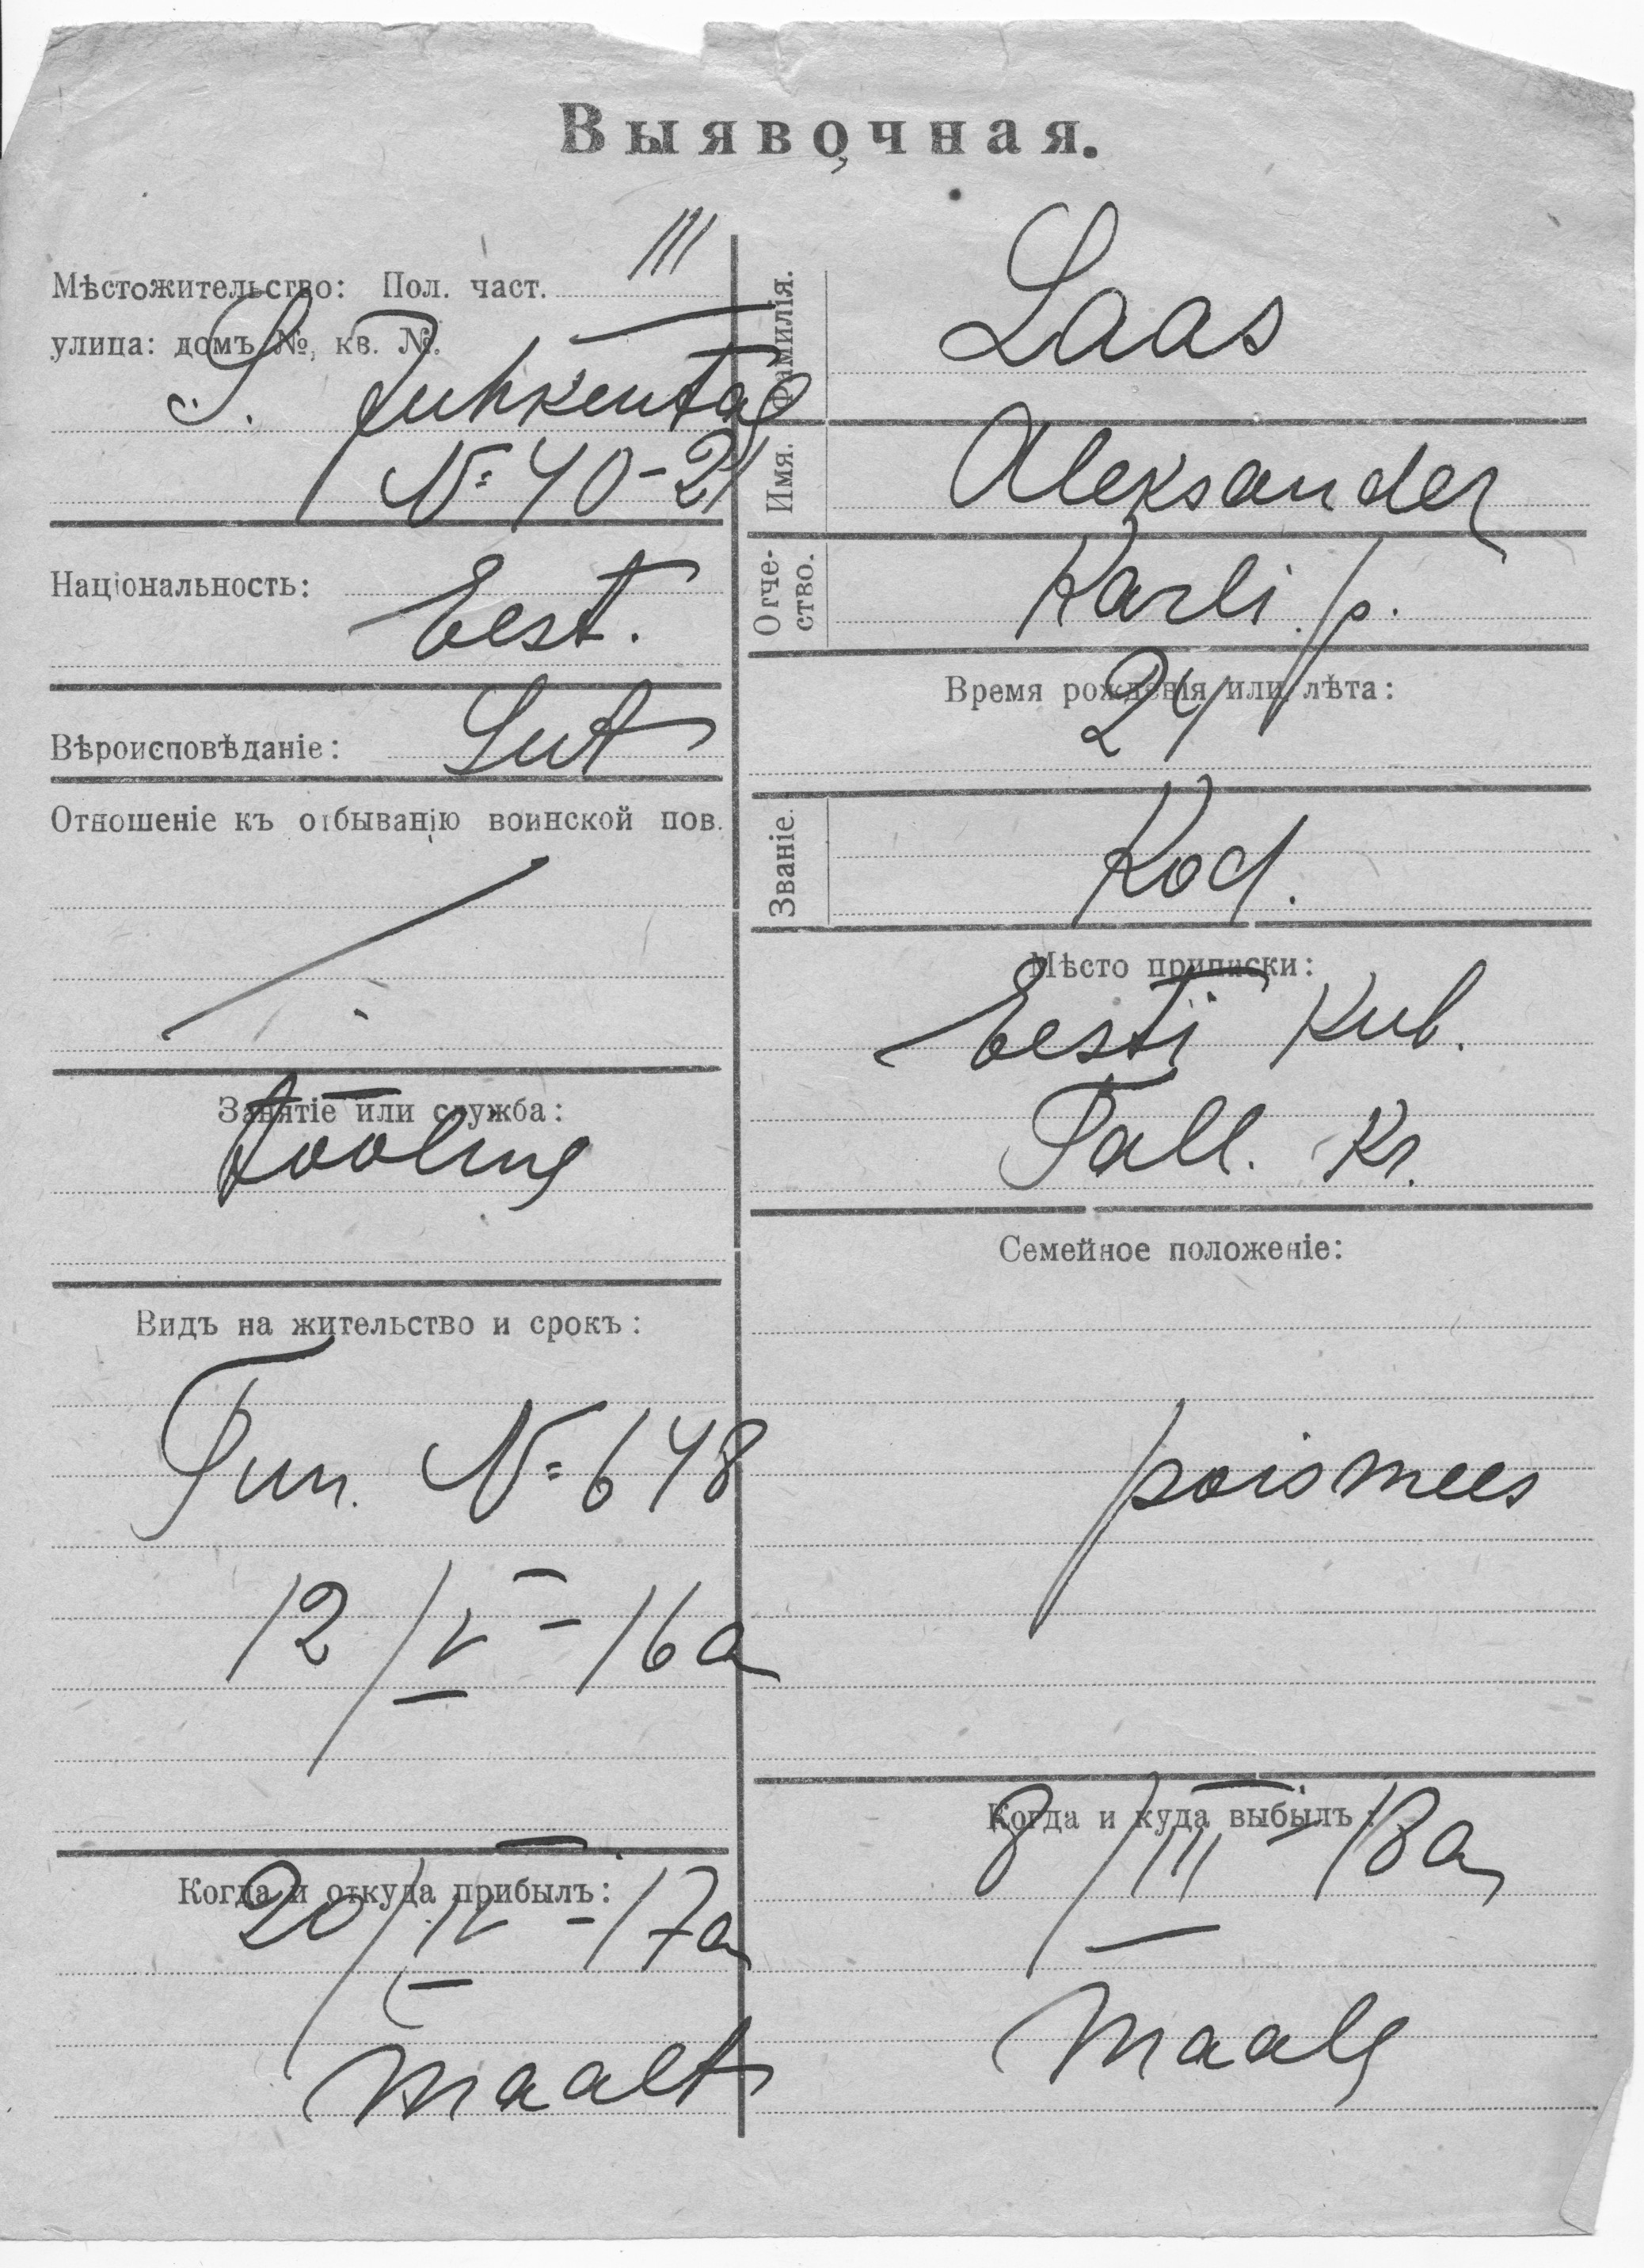 Выявочная.
Мѣстожительство: Пол. част. III
улица: домъ №, кв. №.
S. Juhkentag
№ 40-21
Національность: Eest.
Вѣроисповѣданіе: Lut
Отношеніе къ отбыванію воинской пов.
Занятіе или служба:
tööling
Видъ на жительство и срокъ:
№ 648
12/V - 16a
Когда и откуда прибылъ:
20/IV - 17a
maalt
Фамилія. Laas
Имя. Aleksander
Отче-
ство. Karli p.
Время рожденія или лѣта:
24
Званіе. Kod.
Мѣсто приписки:
Eesti Kub.
Tall. Kr.
Семейное положеніе:
poismees
Когда и куда выбылъ:
8/III - 18a
maale